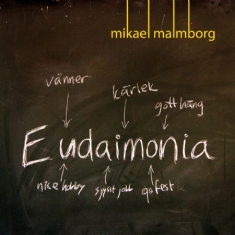 mikael malmborg
vänner
kärlek
gott häng
Eudaimonia
nice hobby
sjysst jobb
go fest